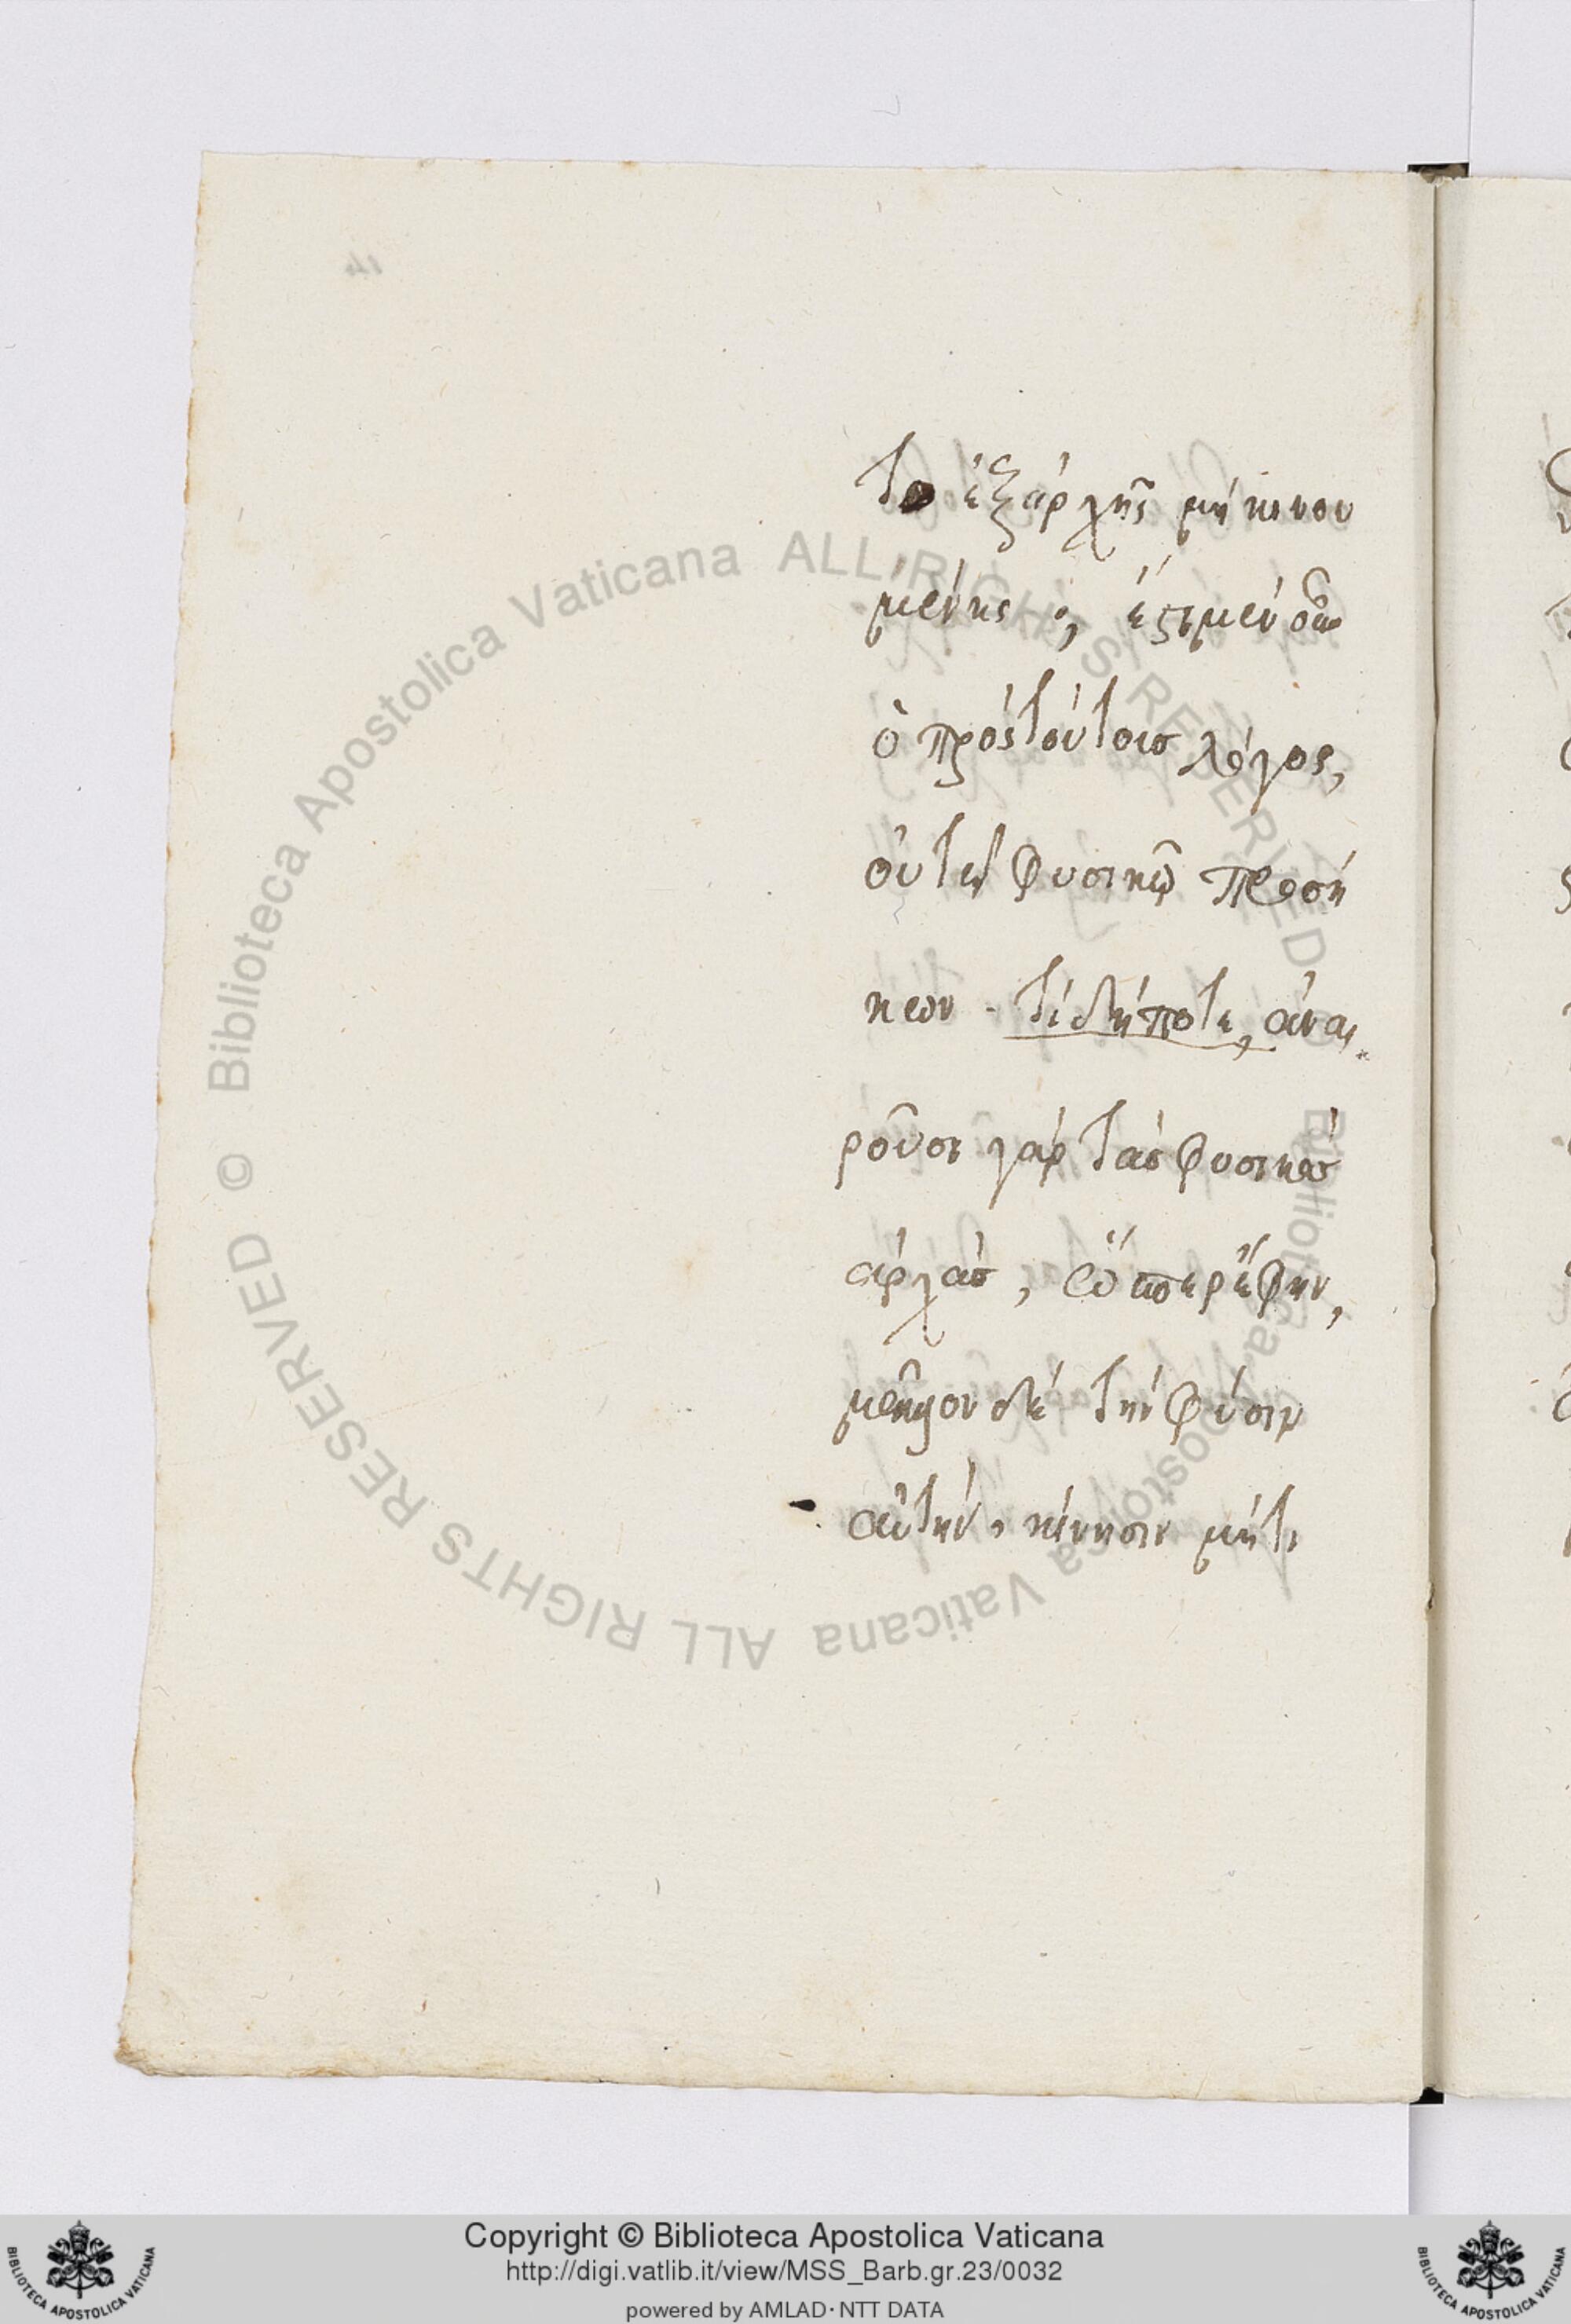 το ἐξαρχῆς μὴ κινου
μένης ; ἐςι μεν οὖν
ὁ πρὸς τούτοις λόγος,
οὐ τῶ φυσικῶ προσή
κων · τί δήποτε, ἀναι
ροῦσι γὰρ τὰς φυσικὰς
ἀρχὰς, ὥσπερ ἔφην,
μᾶλλον δὲ τὴν φύσιν
αὐτήν, κίνησιν μήτε
© Biblioteca Apostolica Vaticana ALL RIGHTS RESERVED © Biblioteca Apostolica Vaticana ALL RIGHTS RESERVED
Copyright © Biblioteca Apostolica Vaticana
http://digi.vatlib.it/view/MSS_Barb.gr.23/0032
powered by AMLAD·NTT DATA
BIBLIOTECA APOSTOLICA VATICANA
BIBLIOTECA APOSTOLICA VATICANA